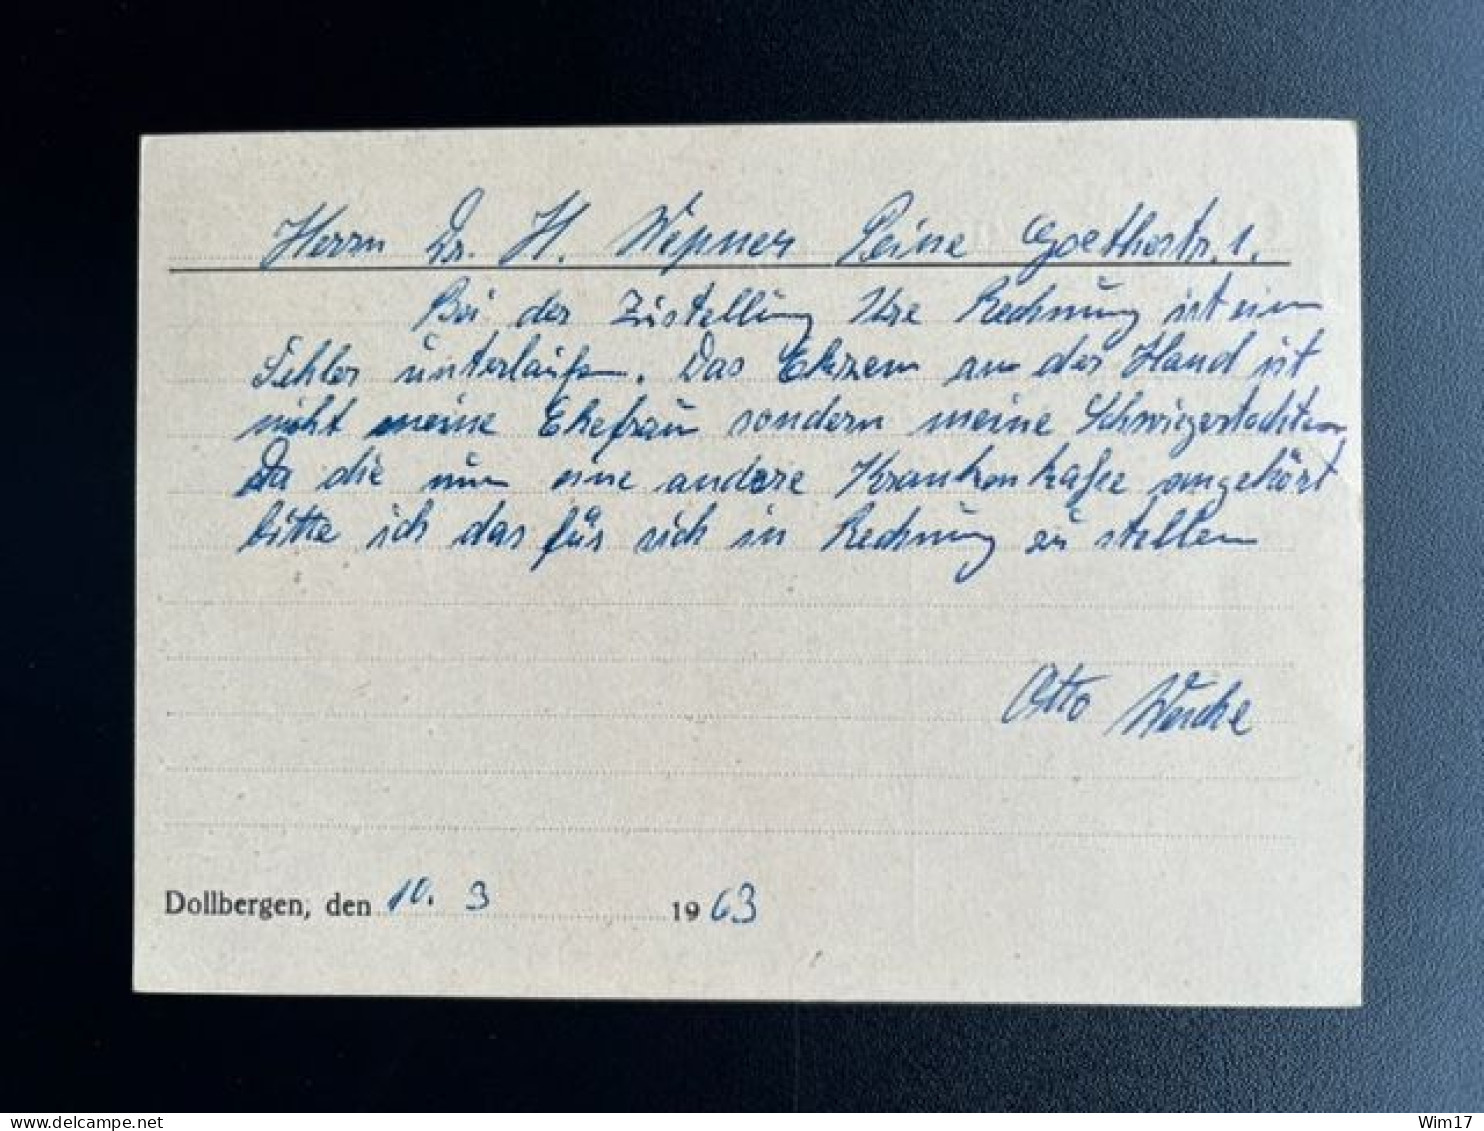 Herrn Dr. H. Peine Goethestr. 1.
Bei der Zustellung Ihre Rechnung ist ein
Fehler unterlaufen. Das Ekzem an der Hand ist
nicht meine Ehefrau sondern meine Schwiegertochter
Da die nun eine andere Krankenkasse angehört
bitte ich das für sich in Rechnung zu stellen
Otto
Dollbergen, den 10. 3 1963
Wim17